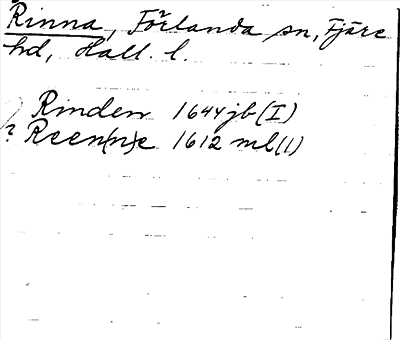 Rinna, Förlanda sn, Fjäre
hd, Hall. l.
Rinden 1644 jb (I)
? Reen(n)e 1612 ml (1)